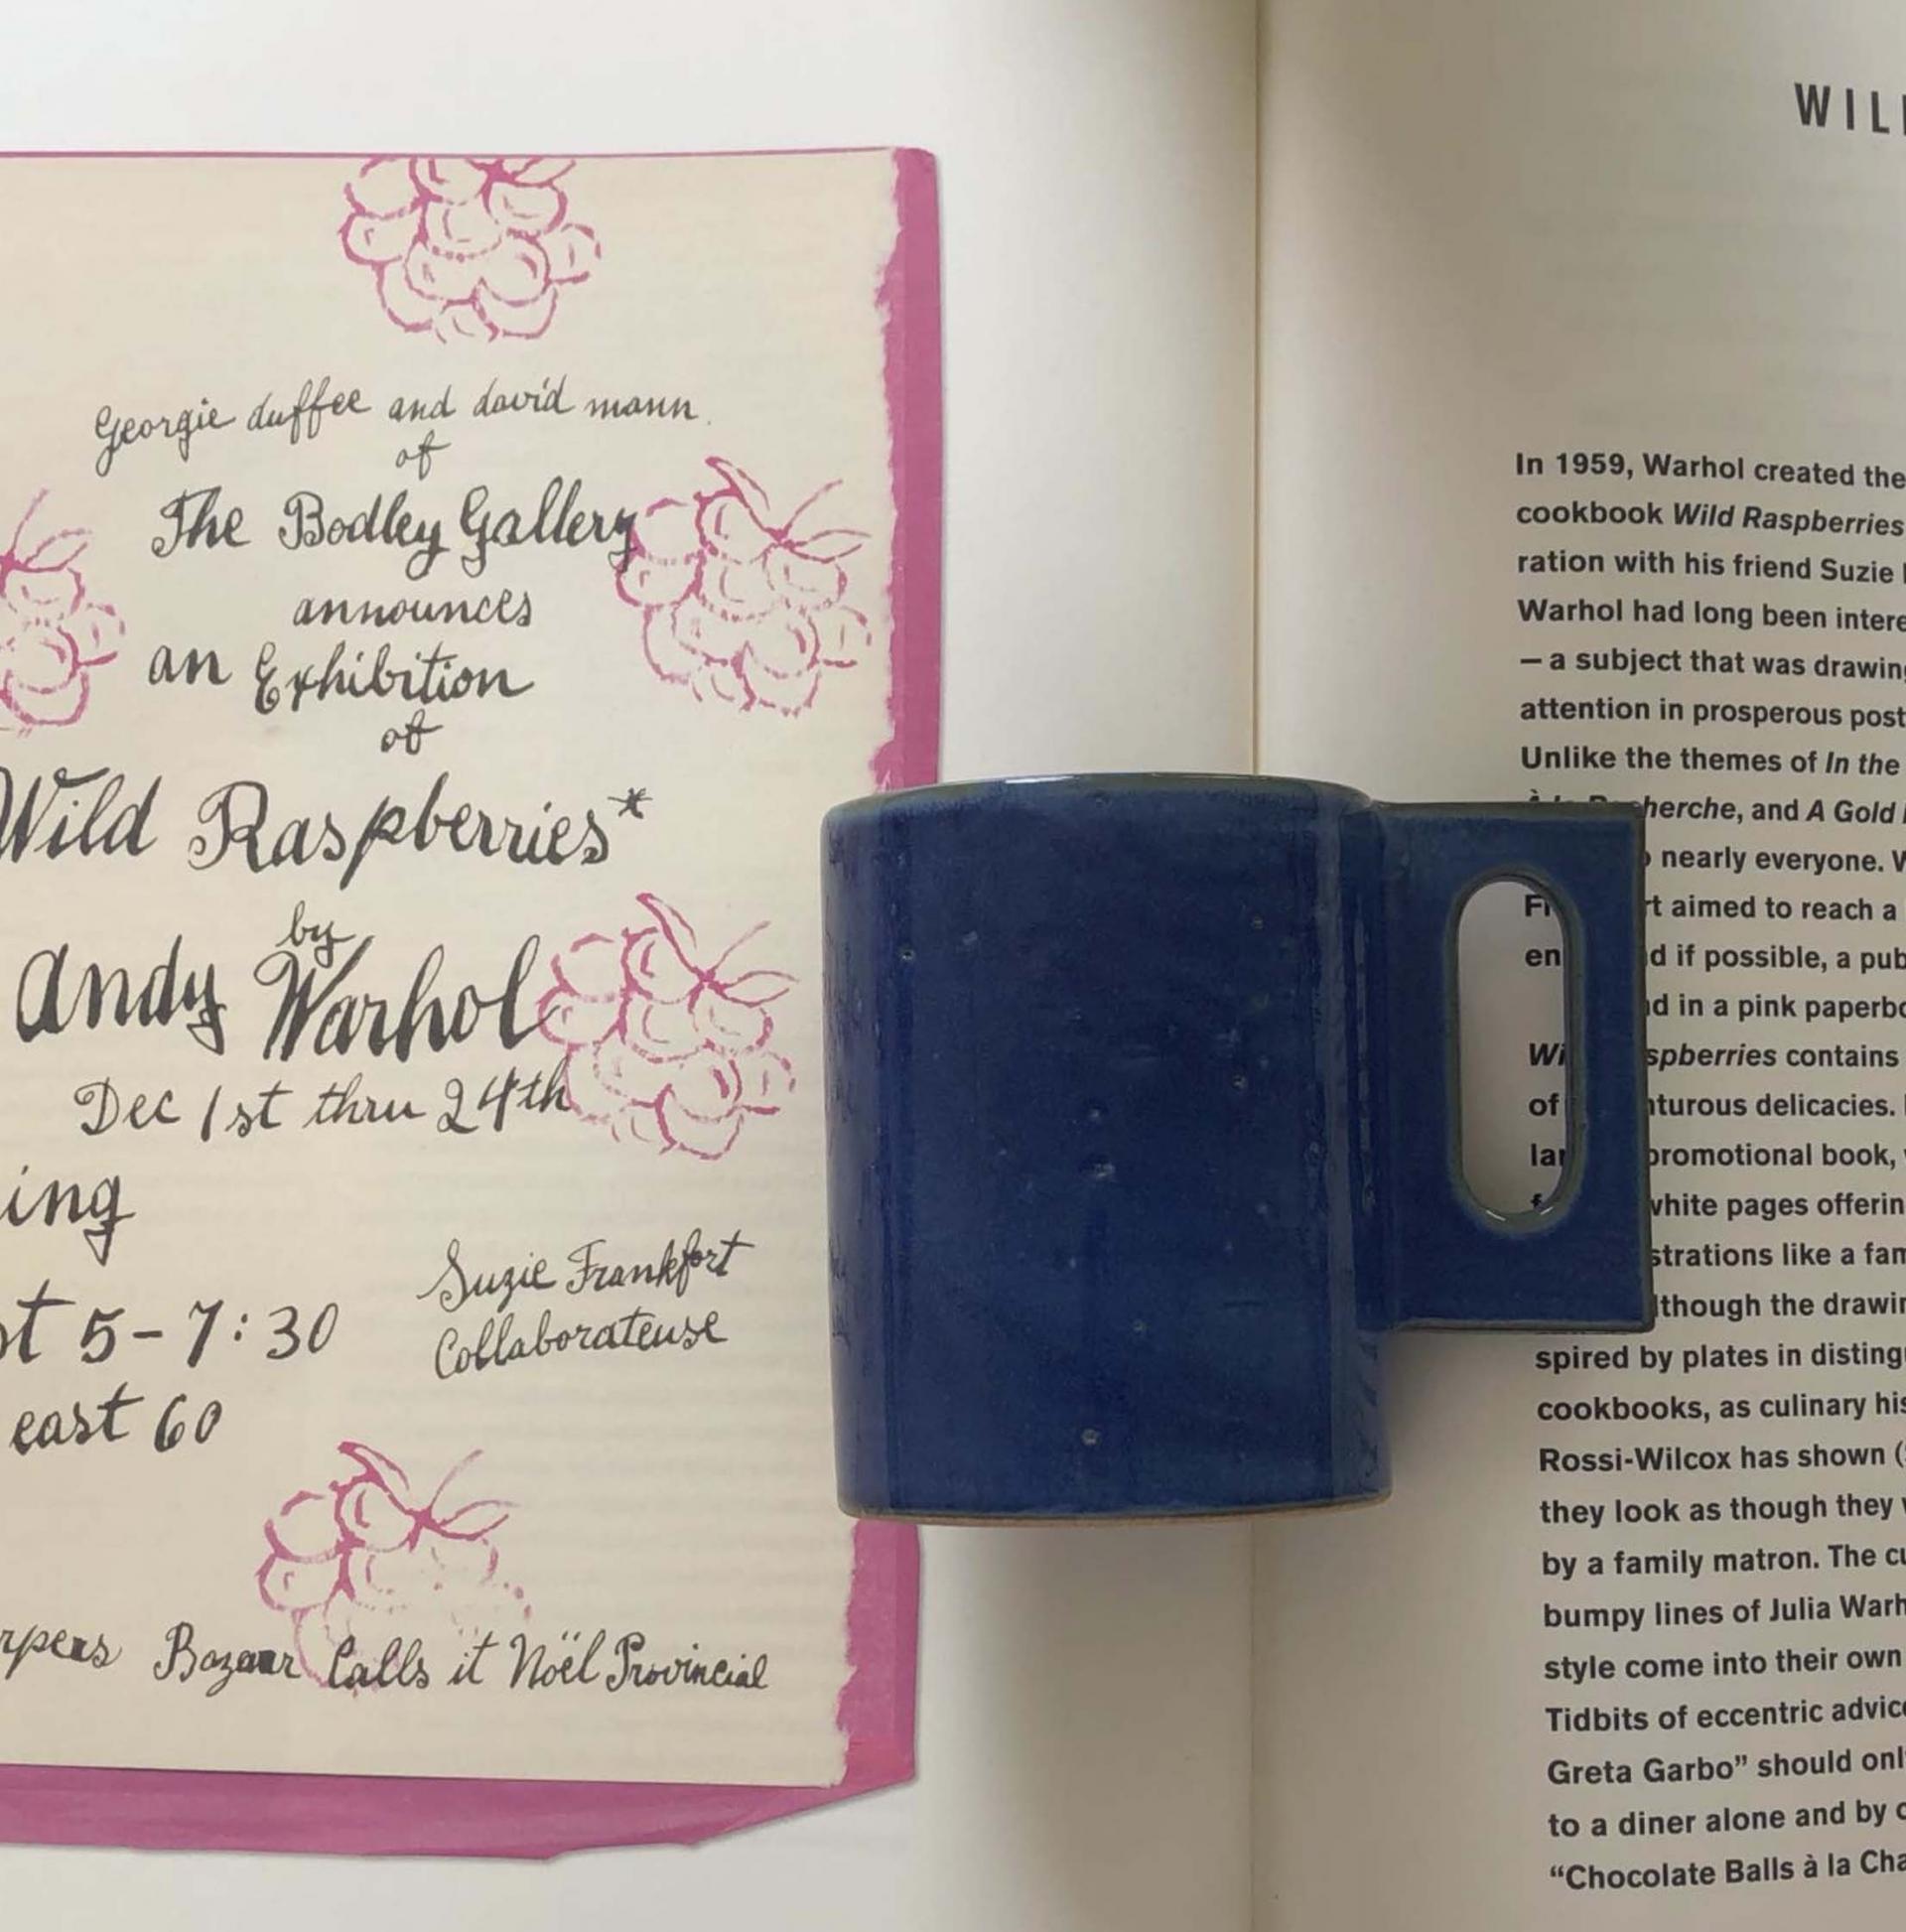 Georgie duffee and david mann.
of
The Bodley Gallery
announces
an Exhibition
of
Wild Raspberries*
by
Andy Warhol
Dec 1st thru 24th
5-7:30
east 60
Suzie Frankfort
Collaborateuse
Bazaar Calls it Noël Provincial
In 1959, Warhol created the
cookbook Wild Raspberries
ration with his friend Suzie
Warhol had long been
— a subject that was
attention in prosperous
Unlike the themes of In the
and A Gold
nearly everyone.
aimed to reach a
if possible, a
in a pink
contains
of delicacies.
promotional book,
white pages
like a
the
spired by plates in
cookbooks, as culinary
Rossi-Wilcox has shown
they look as though they
by a family matron. The
bumpy lines of Julia
style come into their own
Tidbits of eccentric
Greta Garbo” should
to a diner alone and by
“Chocolate Balls à la